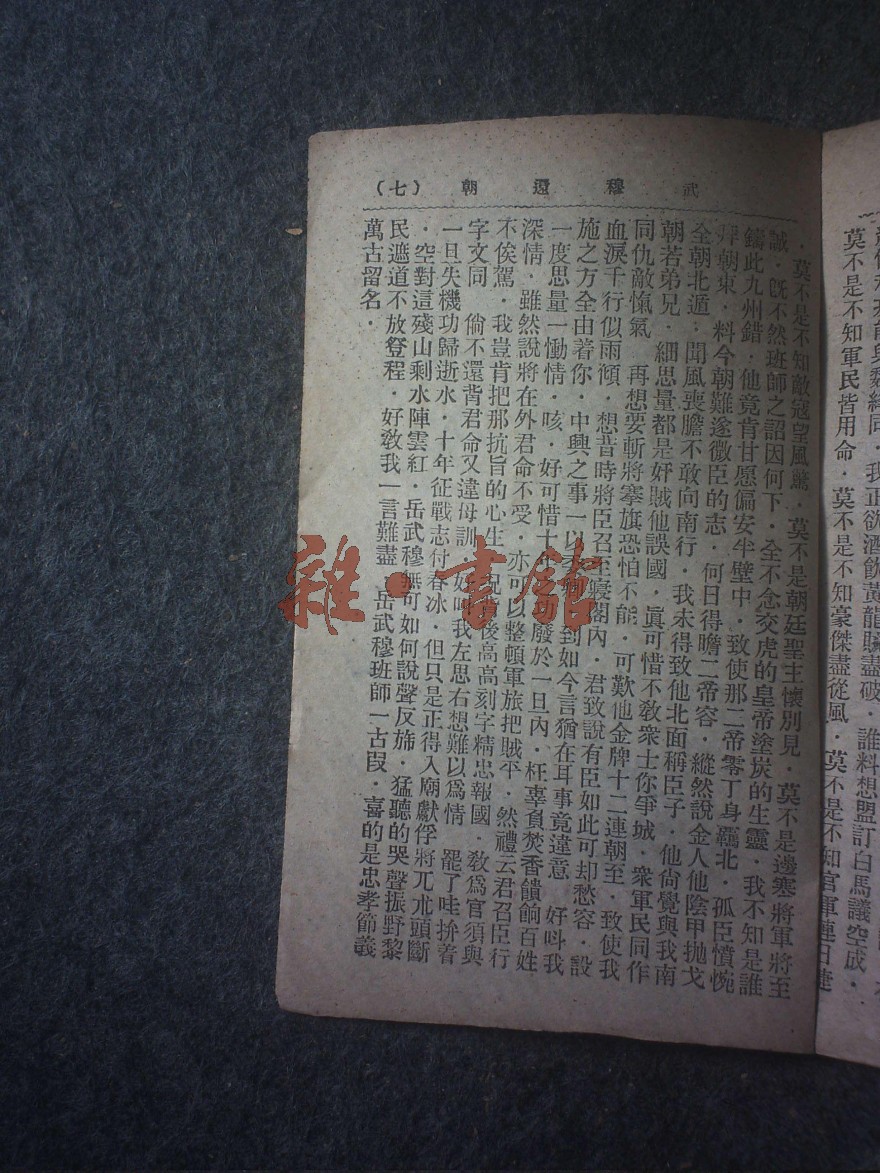 莫不是不知軍民皆用命．莫不是不知豪傑盡從風．莫不是不知官軍連日捷
武穆還朝（七）
．莫不是不知敵寇望風驚．莫不是朝廷聖主懷別見．莫不是邊塞將軍將至
誠．旣不然班師之詔因何下．全不念交虎的皇帝塗炭的生靈．我不知是誰
鑄此九州錯．他竟肯甘愿偏安半壁中．致使那二帝零丁身羈北．孤臣憤惋
拜朝東．料今朝難遂微臣的志．何日得瞻二帝容．縱然說金人他陰甲拋戈
全朝北遁．聞風喪膽不敢向南行．我未得致他北面稱臣子．他尙覺與我南
朝若弟兄．細思量都是奸賊他誤國．眞可惜不敎衆士你爭城．衆軍民同作
同仇敵愾氣　再想要斬將搴旗恐怕不能．可歎他金牌十二連朝至．致使我
血淚千行似雨傾．想昔時將臣召至寢閣內．君致說有臣如此可却愁容．設
施之方全由着你．中興之事一以 到如今言猶在耳事竟違意　好呌我
一度思量一慟情．咳．好可惜十年 廢於一旦內．枉辜負焚香饋餉百姓
深情．雖然說將在外君命不受．亦可以整頓軍旅把賊平．然禮云君召臣行
不俟駕．我豈肯把那抗旨的心生 後高高刻字精忠報國．敎爲官須與
字文同　倘不還背君命又違母訓．好呌我左思右想難以爲情　罷了哇拚着
一旦失機功歸逝水．十年征戰志付春冰．但只是正得入廟獻俘將兀朮頭斷
．空對這殘山剩水陣雲紅．岳武穆無可如何說聲反斾．猛聽的哭聲振野黎
民遮道不放登程．好敎我一言難盡　岳武穆班師一古叚．喜的是忠孝節義
萬古留名．
雜·書館